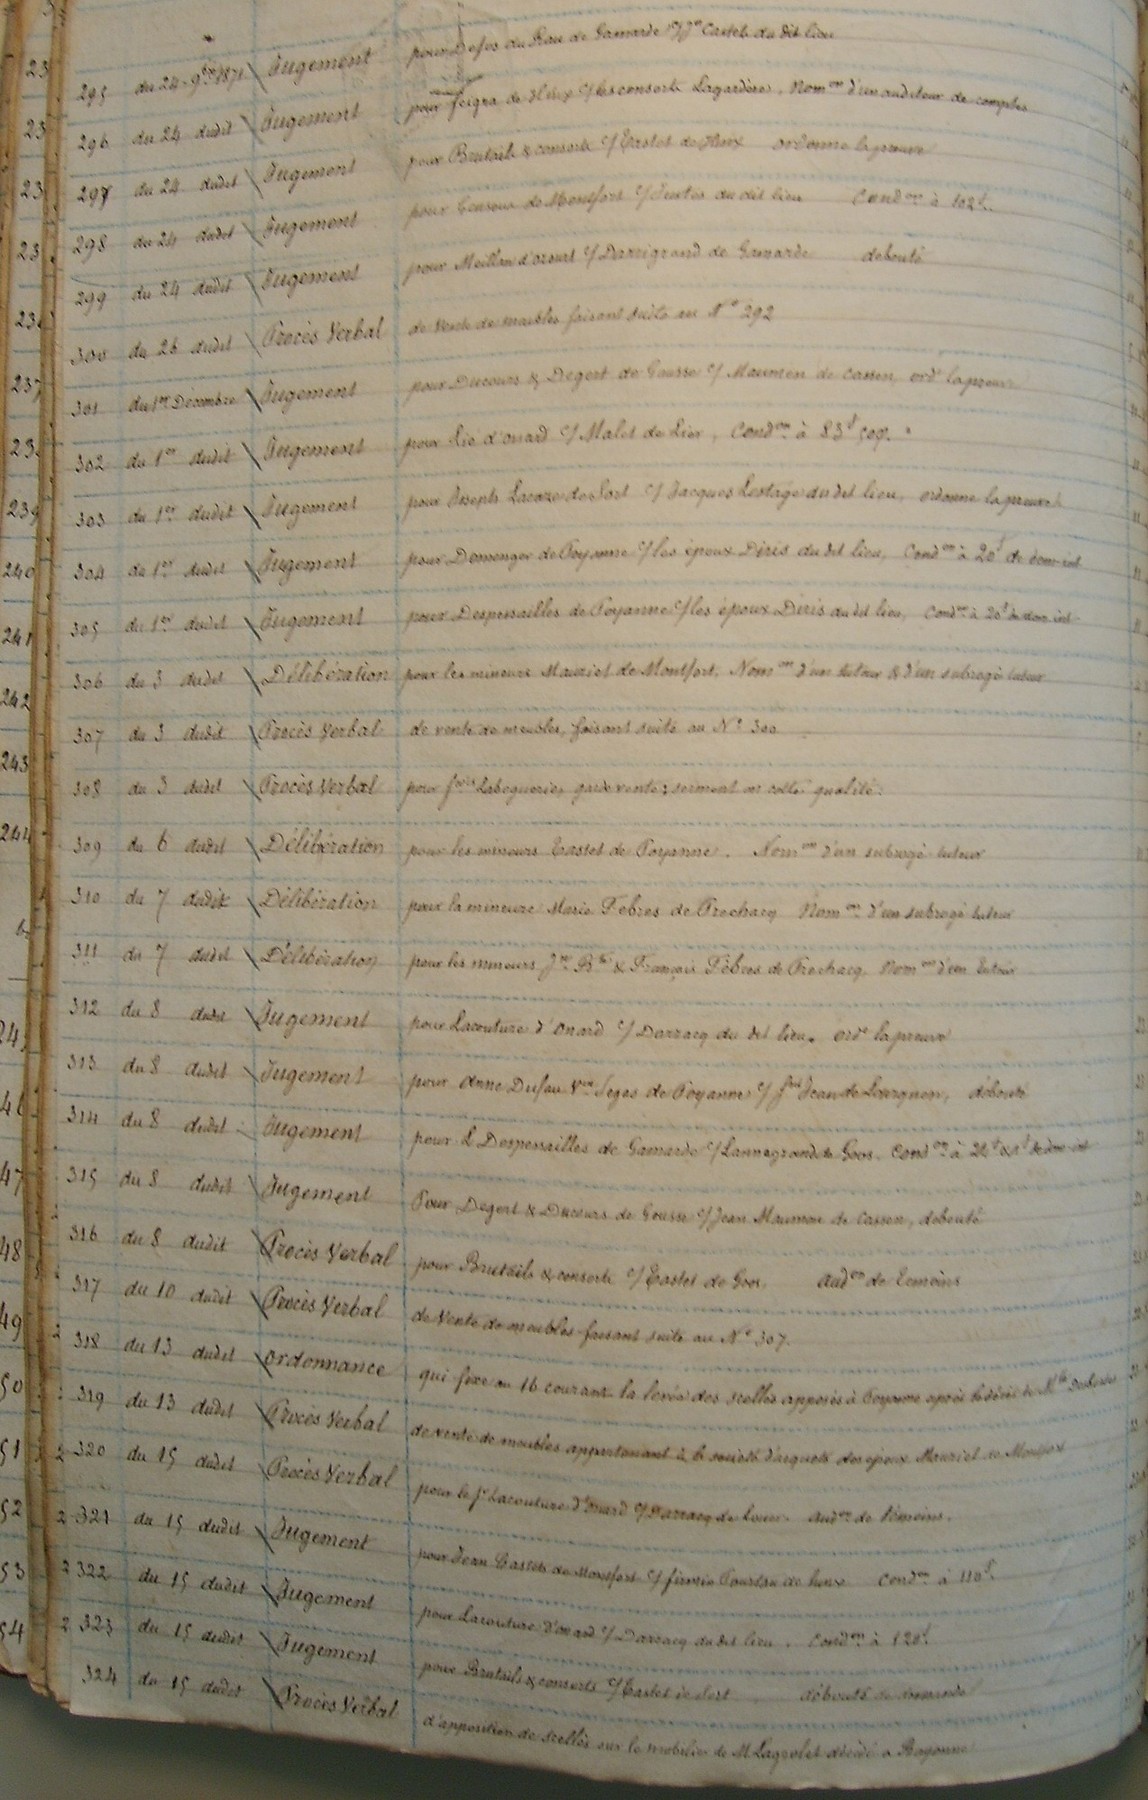 295 du 24 9bre 1871 Jugement pour Defos du Rau de Gamarde c/ Jn Castets du dit lieu
296 du 24 dudit Jugement pour Feigna de c/ les consorts Lagardère, Nomon d'un auditeur de comptes
297 du 24 dudit Jugement pour Brutails & consorts c/ Castet de ordonne la preuve
298 du 24 dudit Jugement pour de Montfort c/ du dit lieu Condon à 102f.
299 du 24 dudit Jugement pour Meilhan d'ozourt c/ Darrigrand de Gamarde débouté
300 du 26 dudit Procès Verbal de vente de meubles faisant suite au No 292
301 du 1er Décembre Jugement pour Ducours & Degert de Gousse c/ Maumen de Cassen, ord la preuve
302 du 1er dudit Jugement pour Lié d'onard c/ Malet de Lier, Condon à 83f 50c.
303 du 1er dudit Jugement pour Joseph Lacaze de Sort c/ Jacques Lestage du dit lieu, ordonne la preuve
304 du 1er dudit Jugement pour Domenger de Poyanne c/ les époux Diris du dit lieu, Condon à 20f de dom-int
305 du 1er dudit Jugement pour Despersailles de Poyanne c/ les époux Diris du dit lieu, Condon à 20f de dom. int
306 du 3 dudit Délibération pour les mineurs Mauriet de Montfort. Nomon d'un tuteur & d'un subrogé tuteur
307 du 3 dudit Procès Verbal de vente de meubles, faisant suite au No 300
308 du 3 dudit Procès Verbal pour fcois Labeguerie, garde vente; serment en cette qualité.
309 du 6 dudit Délibération pour les mineurs Castet de Poyanne. Nomon d'un subrogé tuteur
310 du 7 dudit Délibération pour la mineure Marie Febres de Prechacq Nomon d'un subrogé tuteur
311 du 7 dudit Délibération pour les mineurs Jn Bte & François Fébres de Prechacq. Nomon d'un tuteur
312 du 8 dudit Jugement pour Lacouture d'Onard c/ Darracq du dit lieu. ord la preuve
313 du 8 dudit Jugement pour Anne Dufau Vve de Poyanne c/ Jean de débouté
314 du 8 dudit Jugement pour L Despersailles de Gamarde c/ Lannegrand de Goos. Condon à de dom-int
315 du 8 dudit Jugement Pour Degert & Ducours de Gousse c/ Jean Maumen de Cassen, débouté
316 du 8 dudit Procès Verbal pour Brutails & consorts c/ Castet de Goos. Audon de témoins
317 du 10 dudit Procès Verbal de Vente de meubles faisant suite au No 307.
318 du 13 dudit ordonnance qui fixe au 16 courant la levée des scellés apposés à Poyanne après le décès de Mlle
319 du 13 dudit Procès Verbal de vente de meubles appartenant à la société d'acquets des époux Mauriet de Montfort
320 du 15 dudit Procès Verbal pour le Sr Lacouture d'Onard c/ Darracq de Audon de témoins.
321 du 15 dudit Jugement pour Jean Castets de Montfort c/ firmin de Condon à 110f.
322 du 15 dudit Jugement pour Lacouture d'onard c/ Darracq du dit lieu. Condon à 120f.
323 du 15 dudit Jugement pour Brutails & consorts c/ Castet de Sort débouté de demande
324 du 15 dudit Procès Verbal d'apposition de scellés sur le mobilier de M Lagrolet décédé à Bayonne